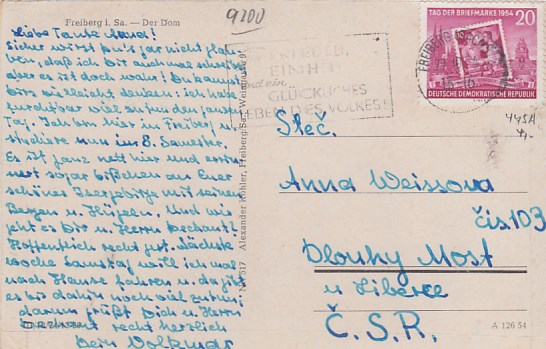 Freiberg i. Sa. — Der Dom
9200
Liebe Tante Anna!
Sicher wirst Du's gar nicht glau-
ben, daß ich Dir auch mal schreibe
aber es ist doch wahr! Du kannst
Dirs vielleicht denken: ich habe
furchtbar viel zu tun den ganzen
Tag. Ich bin hier in Freiberg u.
studiere nun im 8. Semester.
Es ist ganz nett hier und erin-
nert sogar bißchen an Euer
schönes Isergebirge mit seinen
Bergen u. Hügeln. Und wie
geht es Dir u. Herrn Dechant?
Hoffentlich recht gut. Nächste
Woche Samstag will ich mal
nach Hause fahren u. da gibt
es bis dahin noch viel zu tun;
darum grüßt Dich u. Herrn
Dechant recht herzlich
Dein Volkmar
Alexander Köhler, Freiberg/Sa., Weingasse 9
FÜR FRIEDEN,
EINHEIT
und ein
GLÜCKLICHES
LEBEN DES VOLKES!
TAG DER BRIEFMARKE 1954 20
DEUTSCHE DEMOKRATISCHE REPUBLIK
FREIBERG
445A
4,-
Sleč.
Anna Weissova
čís. 103
Dlouhy Most
u Liberce
Č. S. R.
A 126 54